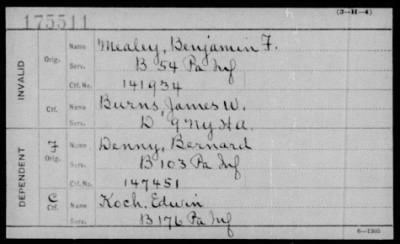 175511
(3—H—4)
INVALID
Orig. Name Mealey, Benjamin F.
Serv. B 54 Pa Inf
Ctf. No. 141934
Ctf. Name Burns, James W.
Serv. D 9 Ny H A.
DEPENDENT
F Orig. Name Denny, Bernard
Serv. B 103 Pa Inf
Ctf. No. 147451
C Ctf. Name Koch, Edwin
Serv. B 176 Pa Inf
6—1305